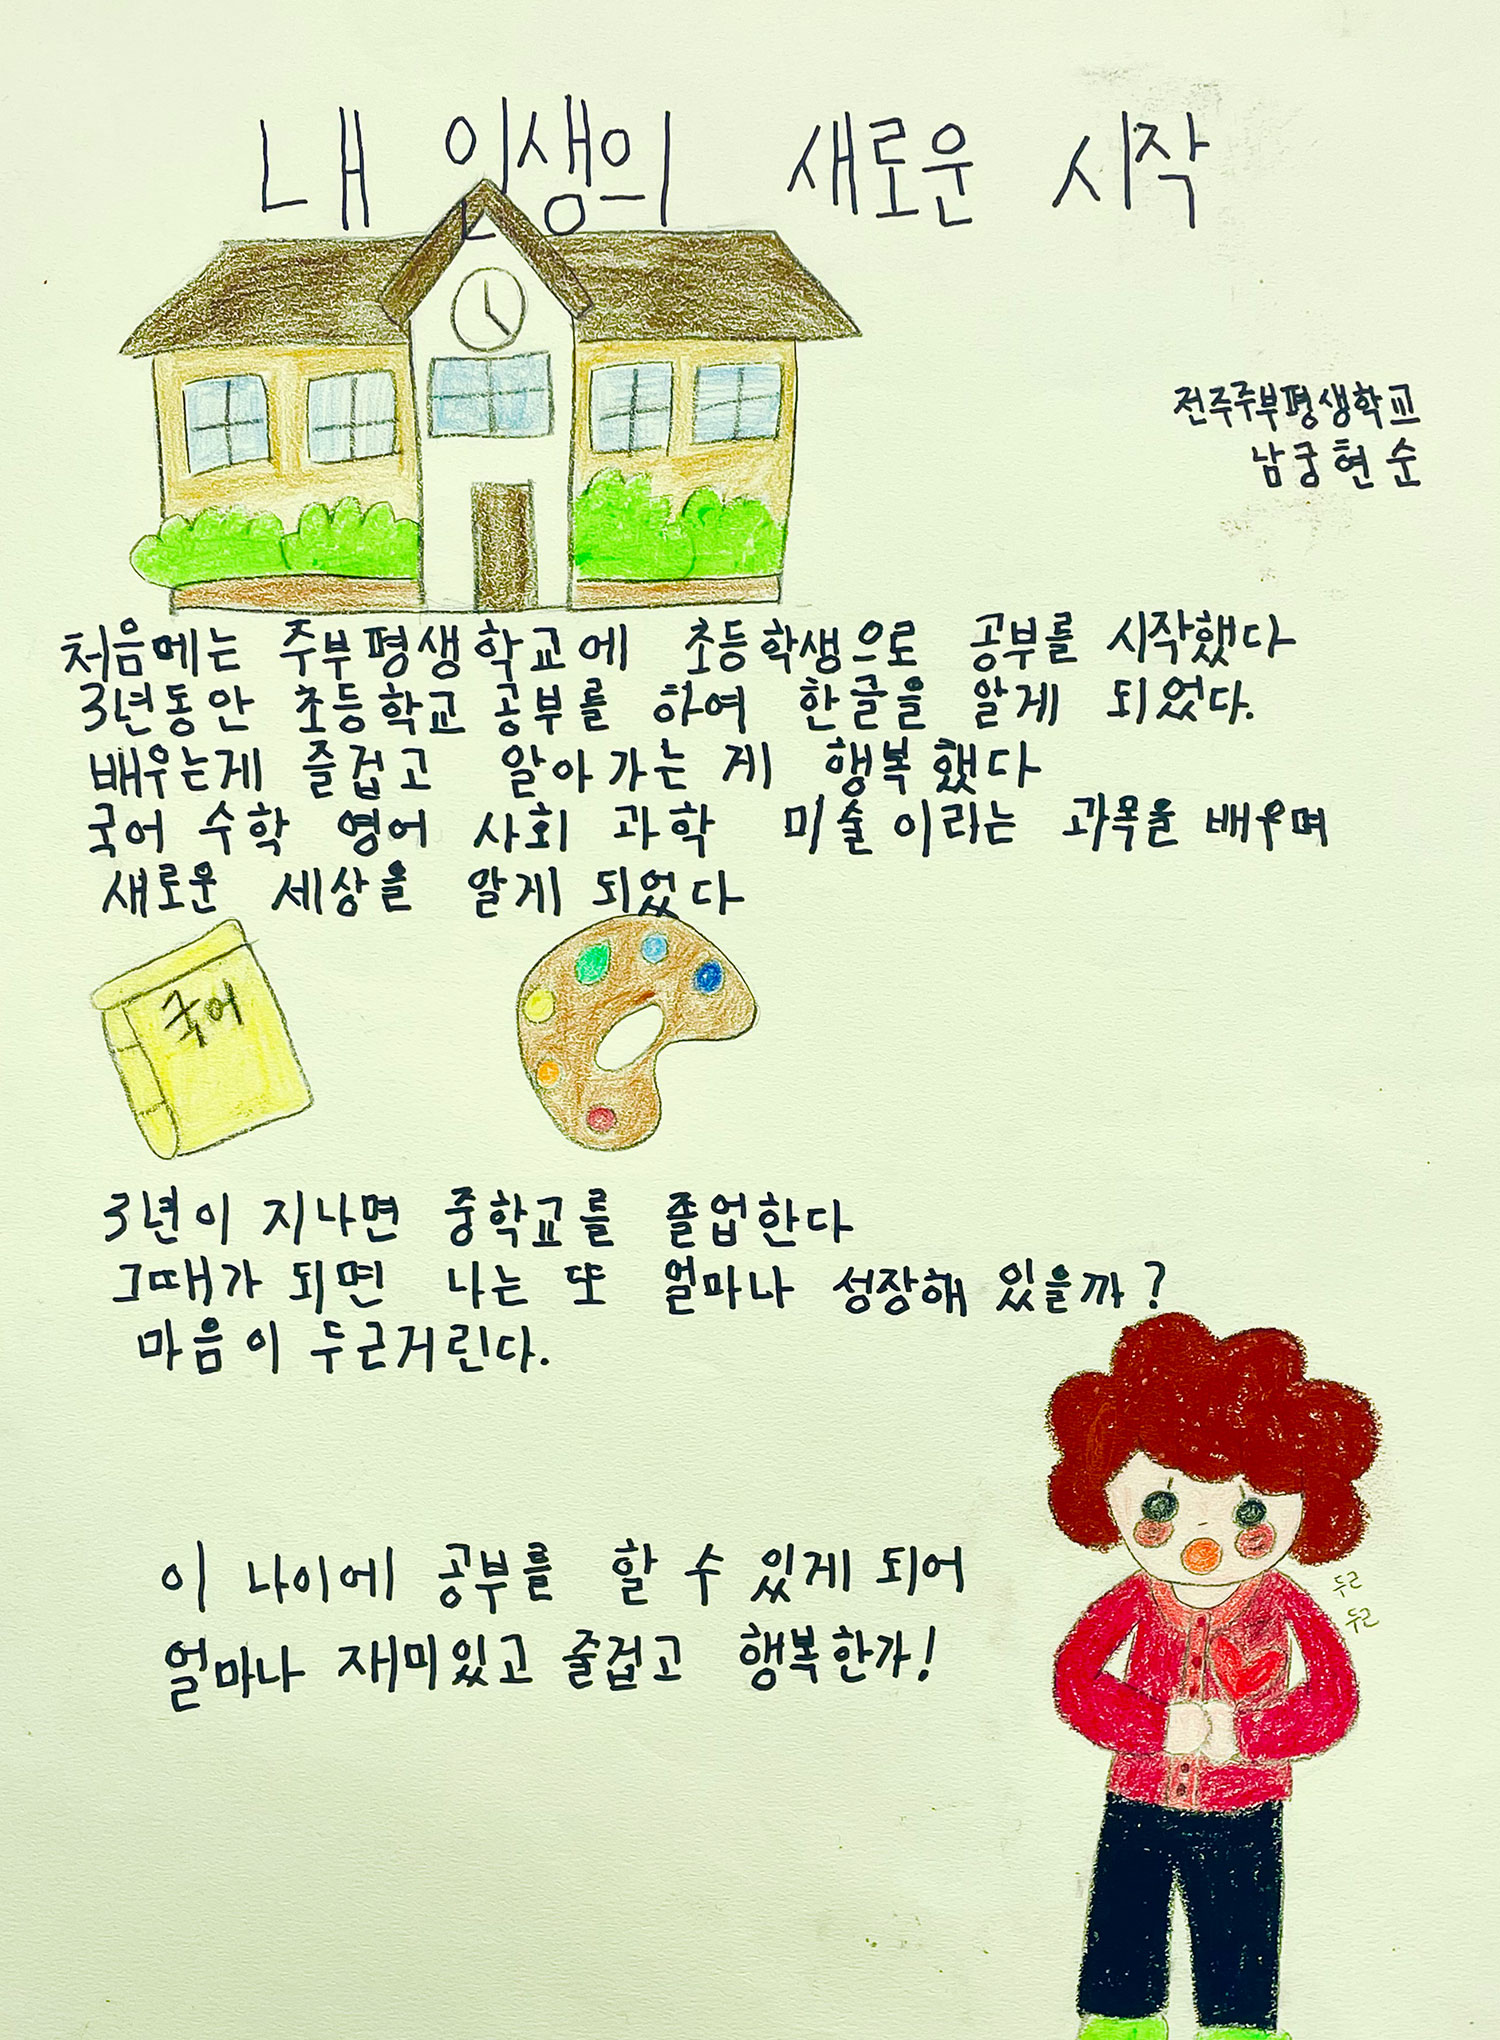 내 인생의 새로운 시작
전주주부평생학교
남궁현순
처음메는 주부평생학교에 초등학생으로 공부를 시작했다
3년동안 초등학교 공부를 하여 한글을 알게 되었다.
배우는게 즐겁고 알아가는 게 행복했다
국어 수학 영어 사회 과학 미술이라는 과목을 배우며
새로운 세상을 알게 되었다
국어
3년이 지나면 중학교를 졸업한다
그때가 되면 나는 또 얼마나 성장해 있을까?
마음이 두근거린다.
이 나이에 공부를 할 수 있게 되어
얼마나 재미있고 줄겁고 행복한가!
두근
두근